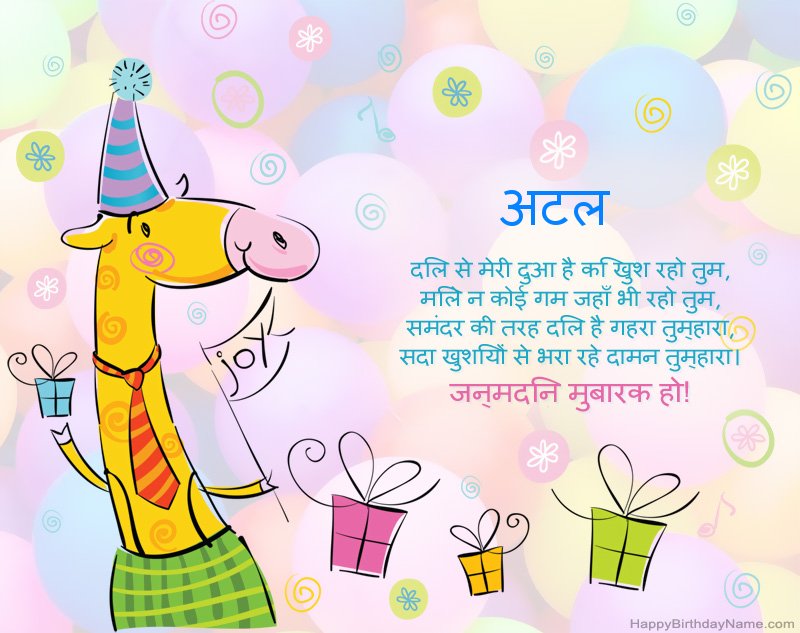 अटल
दलि से मेरी दुआ है कि खुश रहो तुम,
मलिे न कोई गम जहाँ भी रहो तुम,
समंदर की तरह दलि है गहरा तुम्हारा,
सदा खुशयिों से भरा रहे दामन तुम्हारा।
जन्मदनि मुबारक हो!
joy
HappyBirthdayName.com